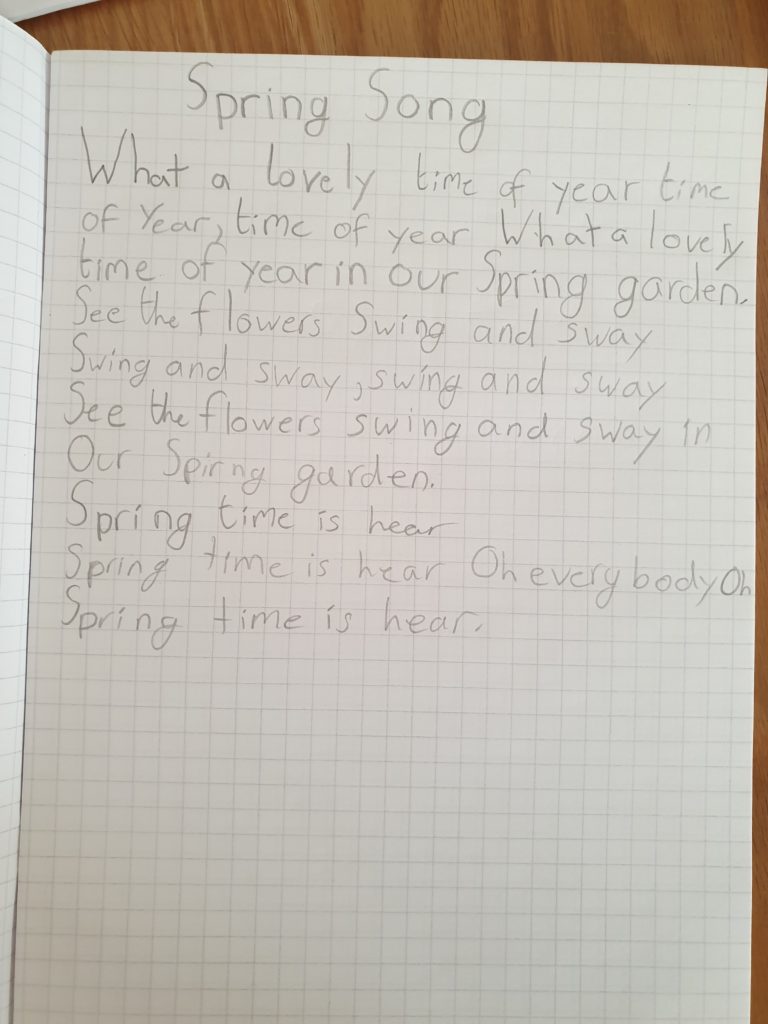 Spring Song
What a lovely time of year time
of Year, time of year What a lovely
time of year in our Spring garden.
See the flowers Swing and sway
Swing and sway, swing and sway
See the flowers swing and sway in
Our Spirng garden.
Spring time is hear
Spring time is hear Oh everybody Oh
Spring time is hear.